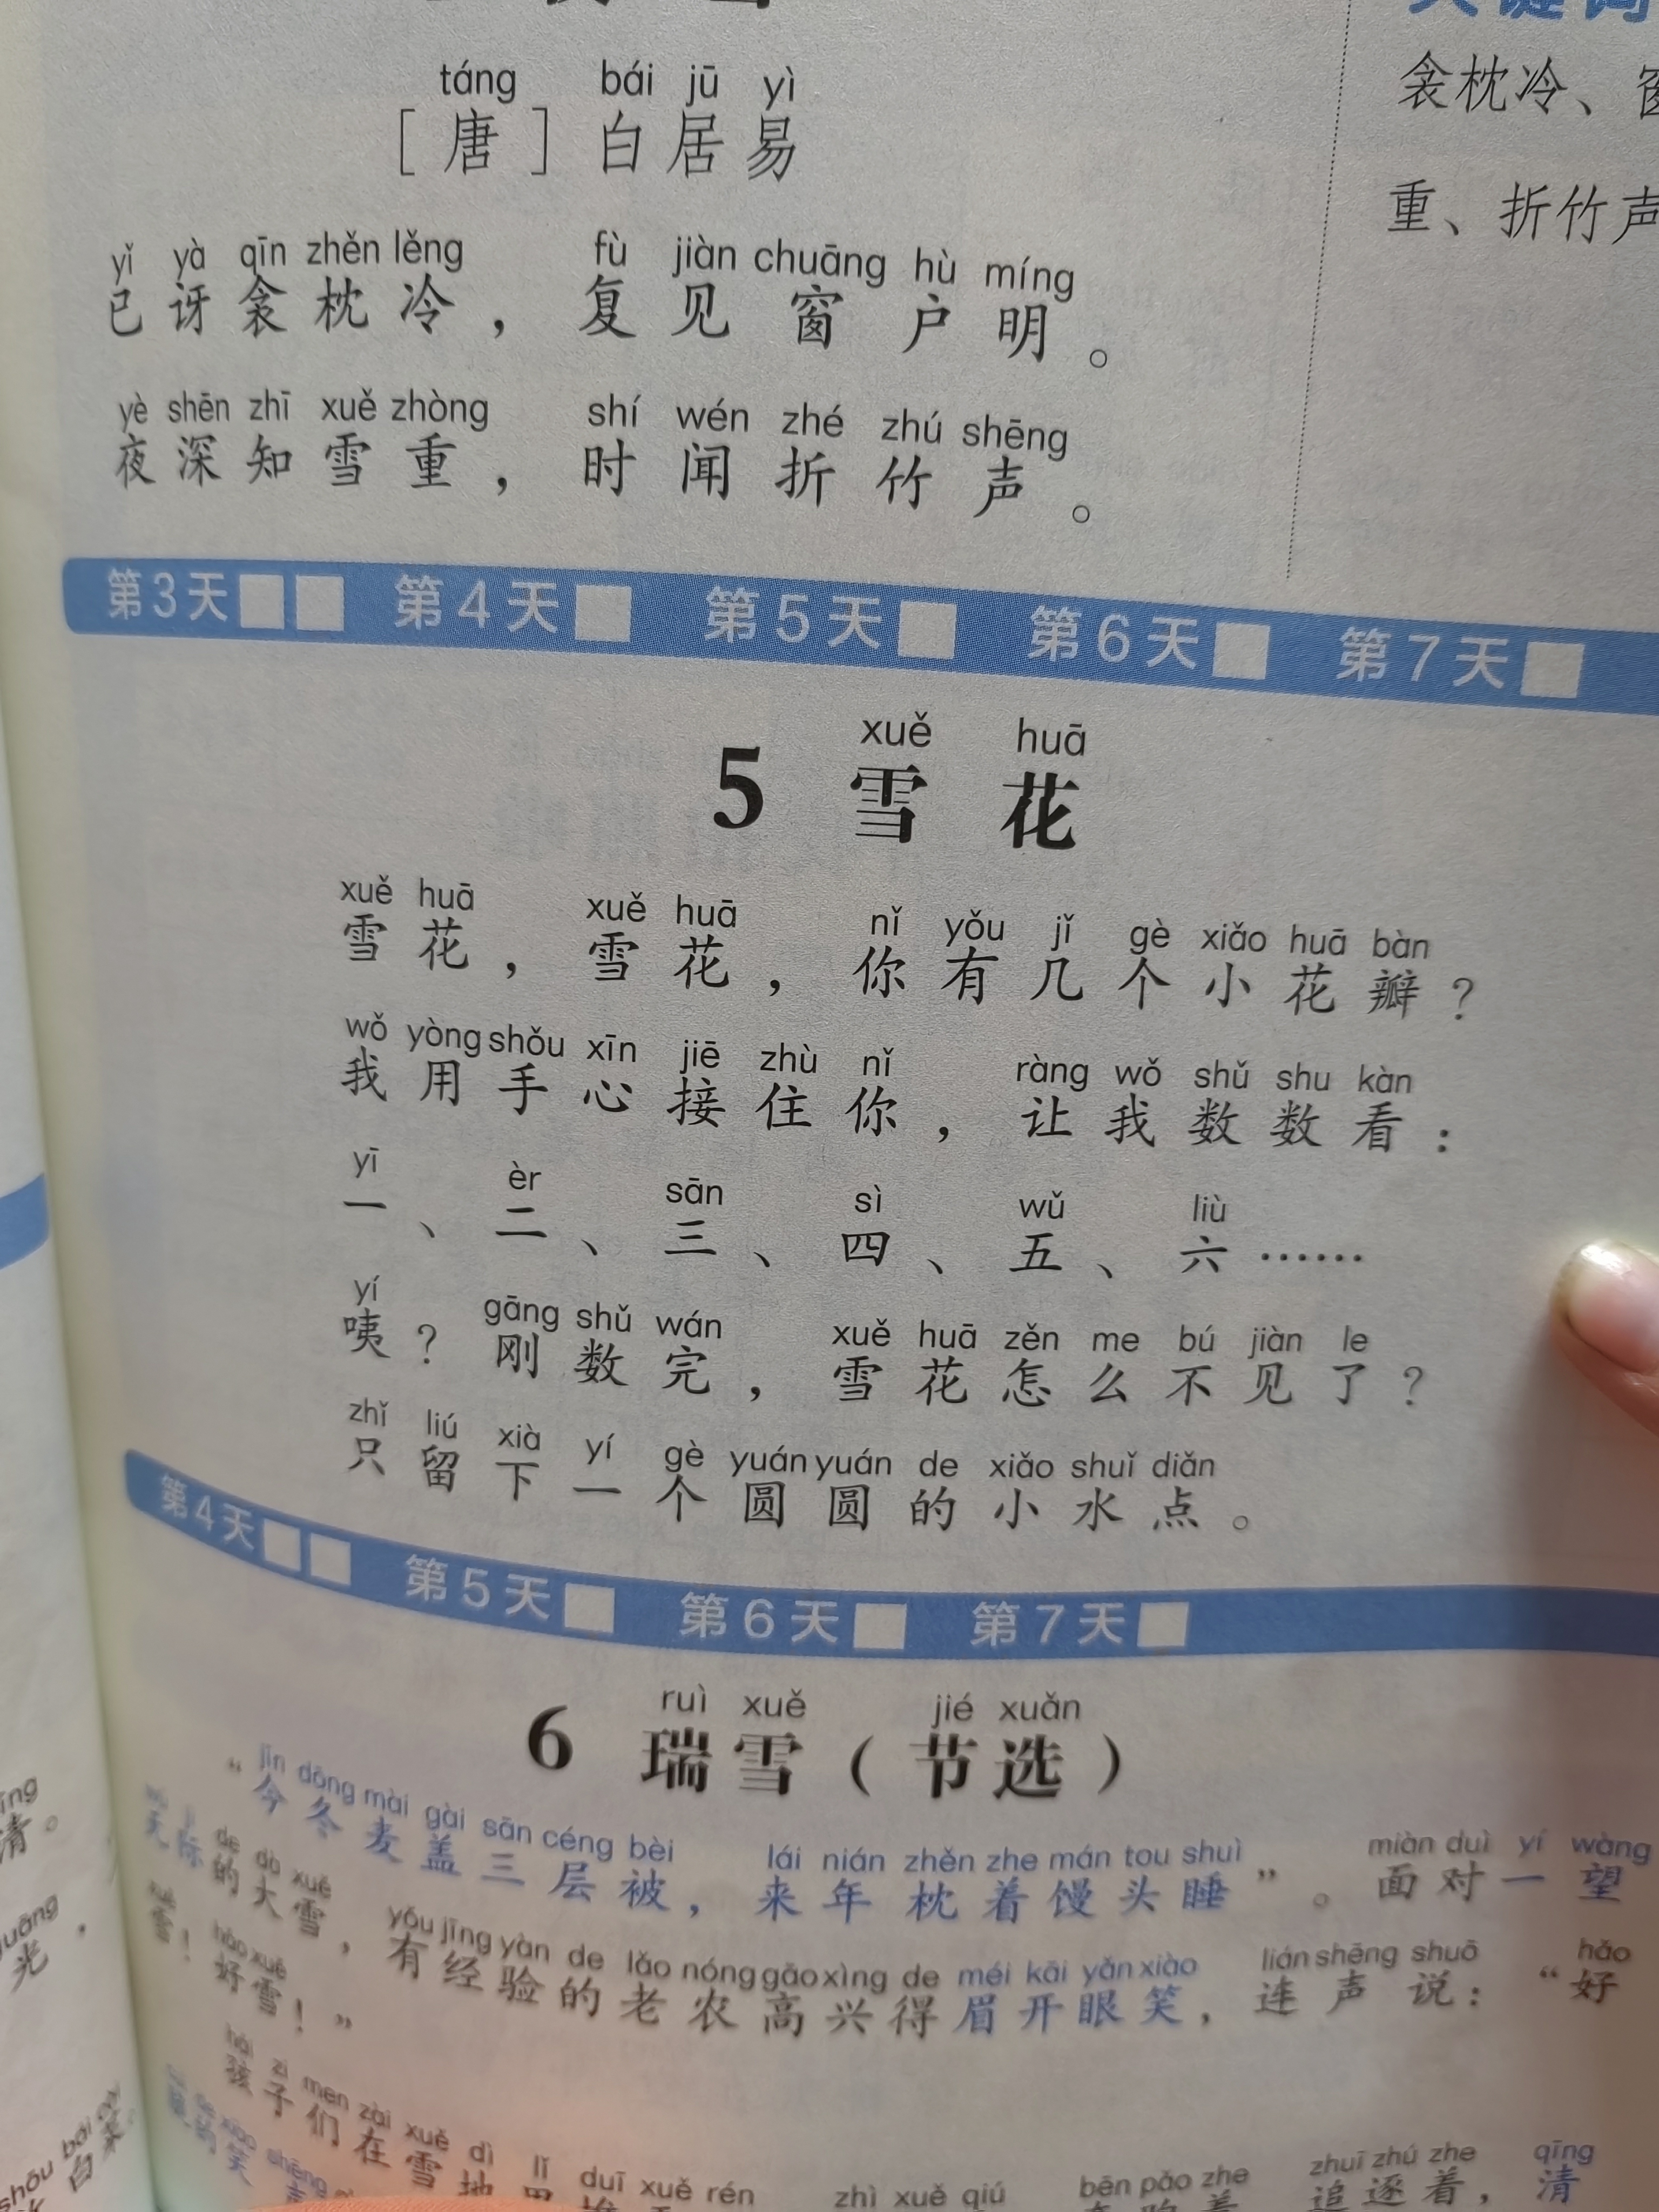 táng bái jū yì
［唐］白居易
yǐ yà qīn zhěn lěng fù jiàn chuāng hù míng
已讶衾枕冷，复见窗户明。
yè shēn zhī xuě zhòng shí wén zhé zhú shēng
夜深知雪重，时闻折竹声。
衾枕冷、
重、折竹声
第3天□□ 第4天□ 第5天□ 第6天□ 第7天□
xuě huā
5 雪花
xuě huā xuě huā nǐ yǒu jǐ gè xiǎo huā bàn
雪花，雪花，你有几个小花瓣？
wǒ yòng shǒu xīn jiē zhù nǐ ràng wǒ shǔ shu kàn
我用手心接住你，让我数数看：
yī èr sān sì wǔ liù
一、二、三、四、五、六……
yí gāng shǔ wán xuě huā zěn me bú jiàn le
咦？刚数完，雪花怎么不见了？
zhǐ liú xià yí gè yuán yuán de xiǎo shuǐ diǎn
只留下一个圆圆的小水点。
第4天□□ 第5天□ 第6天□ 第7天□
ruì xuě jié xuǎn
6 瑞雪（节选）
jīn dōng mài gài sān céng bèi lái nián zhěn zhe mán tou shuì miàn duì yí wàng
“今冬麦盖三层被，来年枕着馒头睡”。面对一望
de dà xuě yǒu jīng yàn de lǎo nóng gāo xìng de méi kāi yǎn xiào lián shēng shuō hǎo
无际的大雪，有经验的老农高兴得眉开眼笑，连声说：“好
xuě hǎo xuě
雪！好雪！”
hái zi men zài xuě dì lǐ duī xuě rén zhì xuě qiú bēn pǎo zhe zhuī zhú zhe qīng
孩子们在雪地 追逐着，清
的笑
清。
光，
白菜。